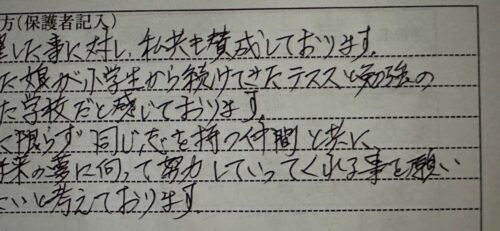 方(保護者記入)
した事に対し、私共も賛成しております。
た娘が小学生から続けてきたテニスと勉強の
た学校だと感じております。
く限らず同じ を持つ仲間と共に、
来の夢に向って努力していってくれる事を願い
たいと考えております。